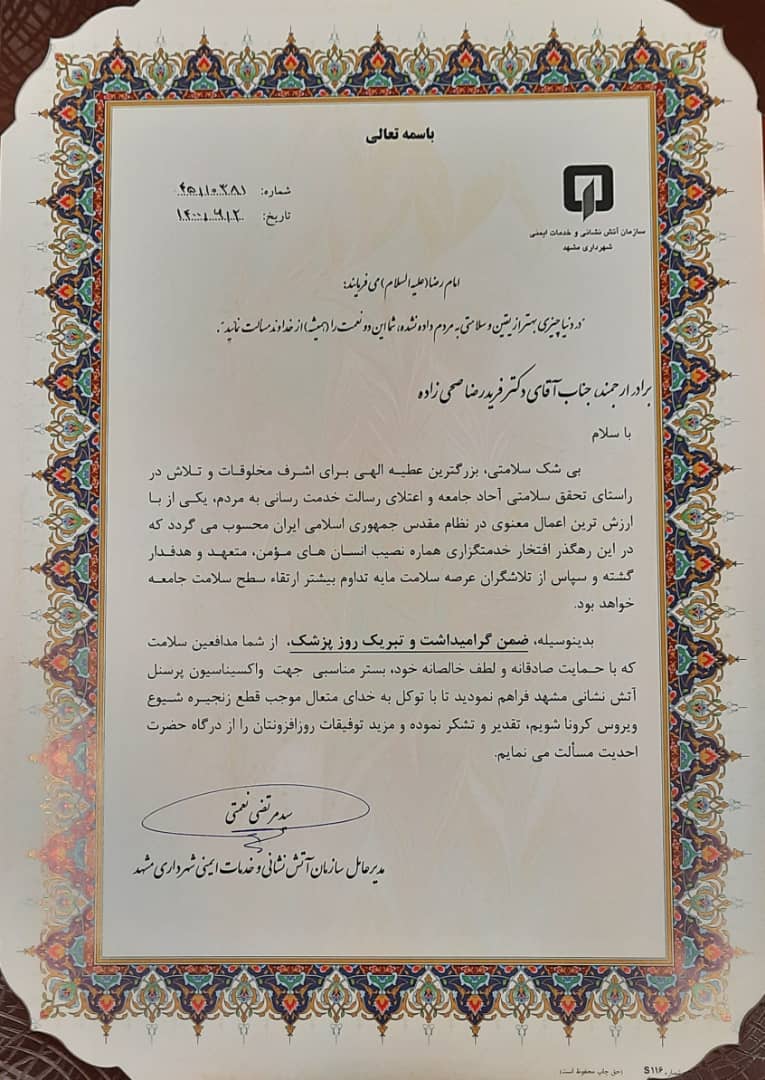 باسمه تعالی
شماره: ۴۵/۱۰۳۸۱
تاریخ: ۱۴۰۰/۶/۲
سازمان آتش نشانی و خدمات ایمنی
شهرداری مشهد
امام رضا(علیه السلام) می فرمایند:
در دنیا چیزی بهتر از یقین و سلامتی به مردم داده نشده، شما این دو نعمت را (همیشه) از خداوند مسالت نمائید.
برادر ارجمند، جناب آقای دکتر فریدرضا صحی زاده
با سلام
بی شک سلامتی، بزرگترین عطیه الهی برای اشرف مخلوقات و تلاش در
راستای تحقق سلامتی آحاد جامعه و اعتلای رسالت خدمت رسانی به مردم، یکی از با
ارزش ترین اعمال معنوی در نظام مقدس جمهوری اسلامی ایران محسوب می گردد که
در این رهگذر افتخار خدمتگزاری هماره نصیب انسان های مؤمن، متعهد و هدفدار
گشته و سپاس از تلاشگران عرصه سلامت مایه تداوم بیشتر ارتقاء سطح سلامت جامعه
خواهد بود.
بدینوسیله، ضمن گرامیداشت و تبریک روز پزشک، از شما مدافعین سلامت
که با حمایت صادقانه و لطف خالصانه خود، بستر مناسبی جهت واکسیناسیون پرسنل
آتش نشانی مشهد فراهم نمودید تا با توکل به خدای متعال موجب قطع زنجیره شیوع
ویروس کرونا شویم، تقدیر و تشکر نموده و مزید توفیقات روزافزونتان را از درگاه حضرت
احدیت مسألت می نمایم.
سیدمرتضی نعمتی
مدیرعامل سازمان آتش نشانی و خدمات ایمنی شهرداری مشهد
(حق چاپ محفوظ است) شماره S۱۱۶